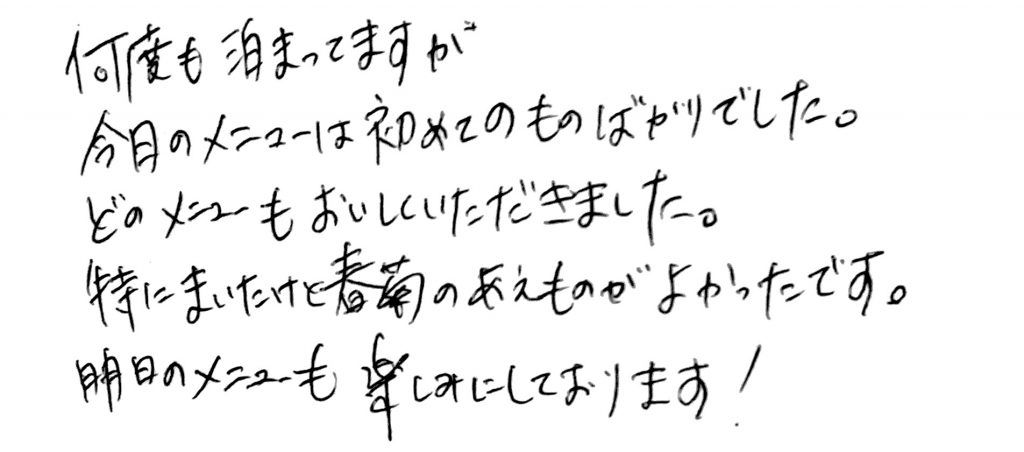 何度も泊まってますが
今日のメニューは初めてのものばかりでした。
どのメニューもおいしくいただきました。
特にまいたけと春菊のあえものがよかったです。
明日のメニューも楽しみにしております!